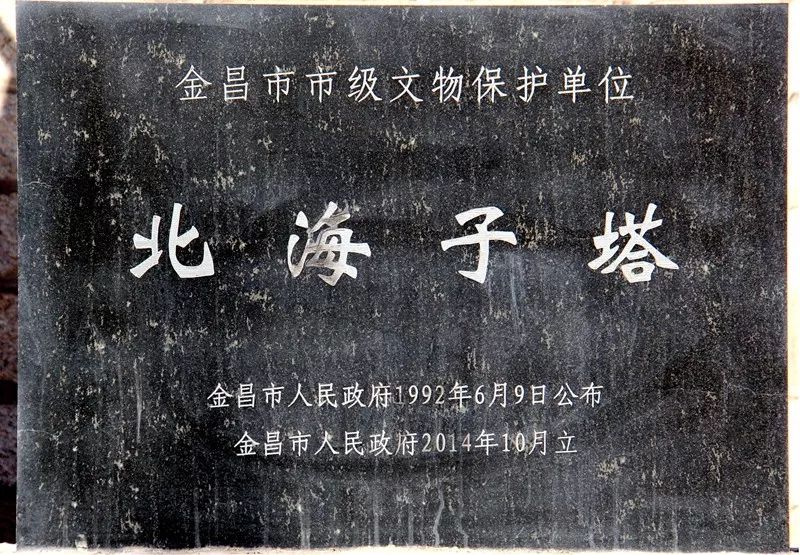 金昌市市级文物保护单位
北海子塔
金昌市人民政府1992年6月9日公布
金昌市人民政府2014年10月立